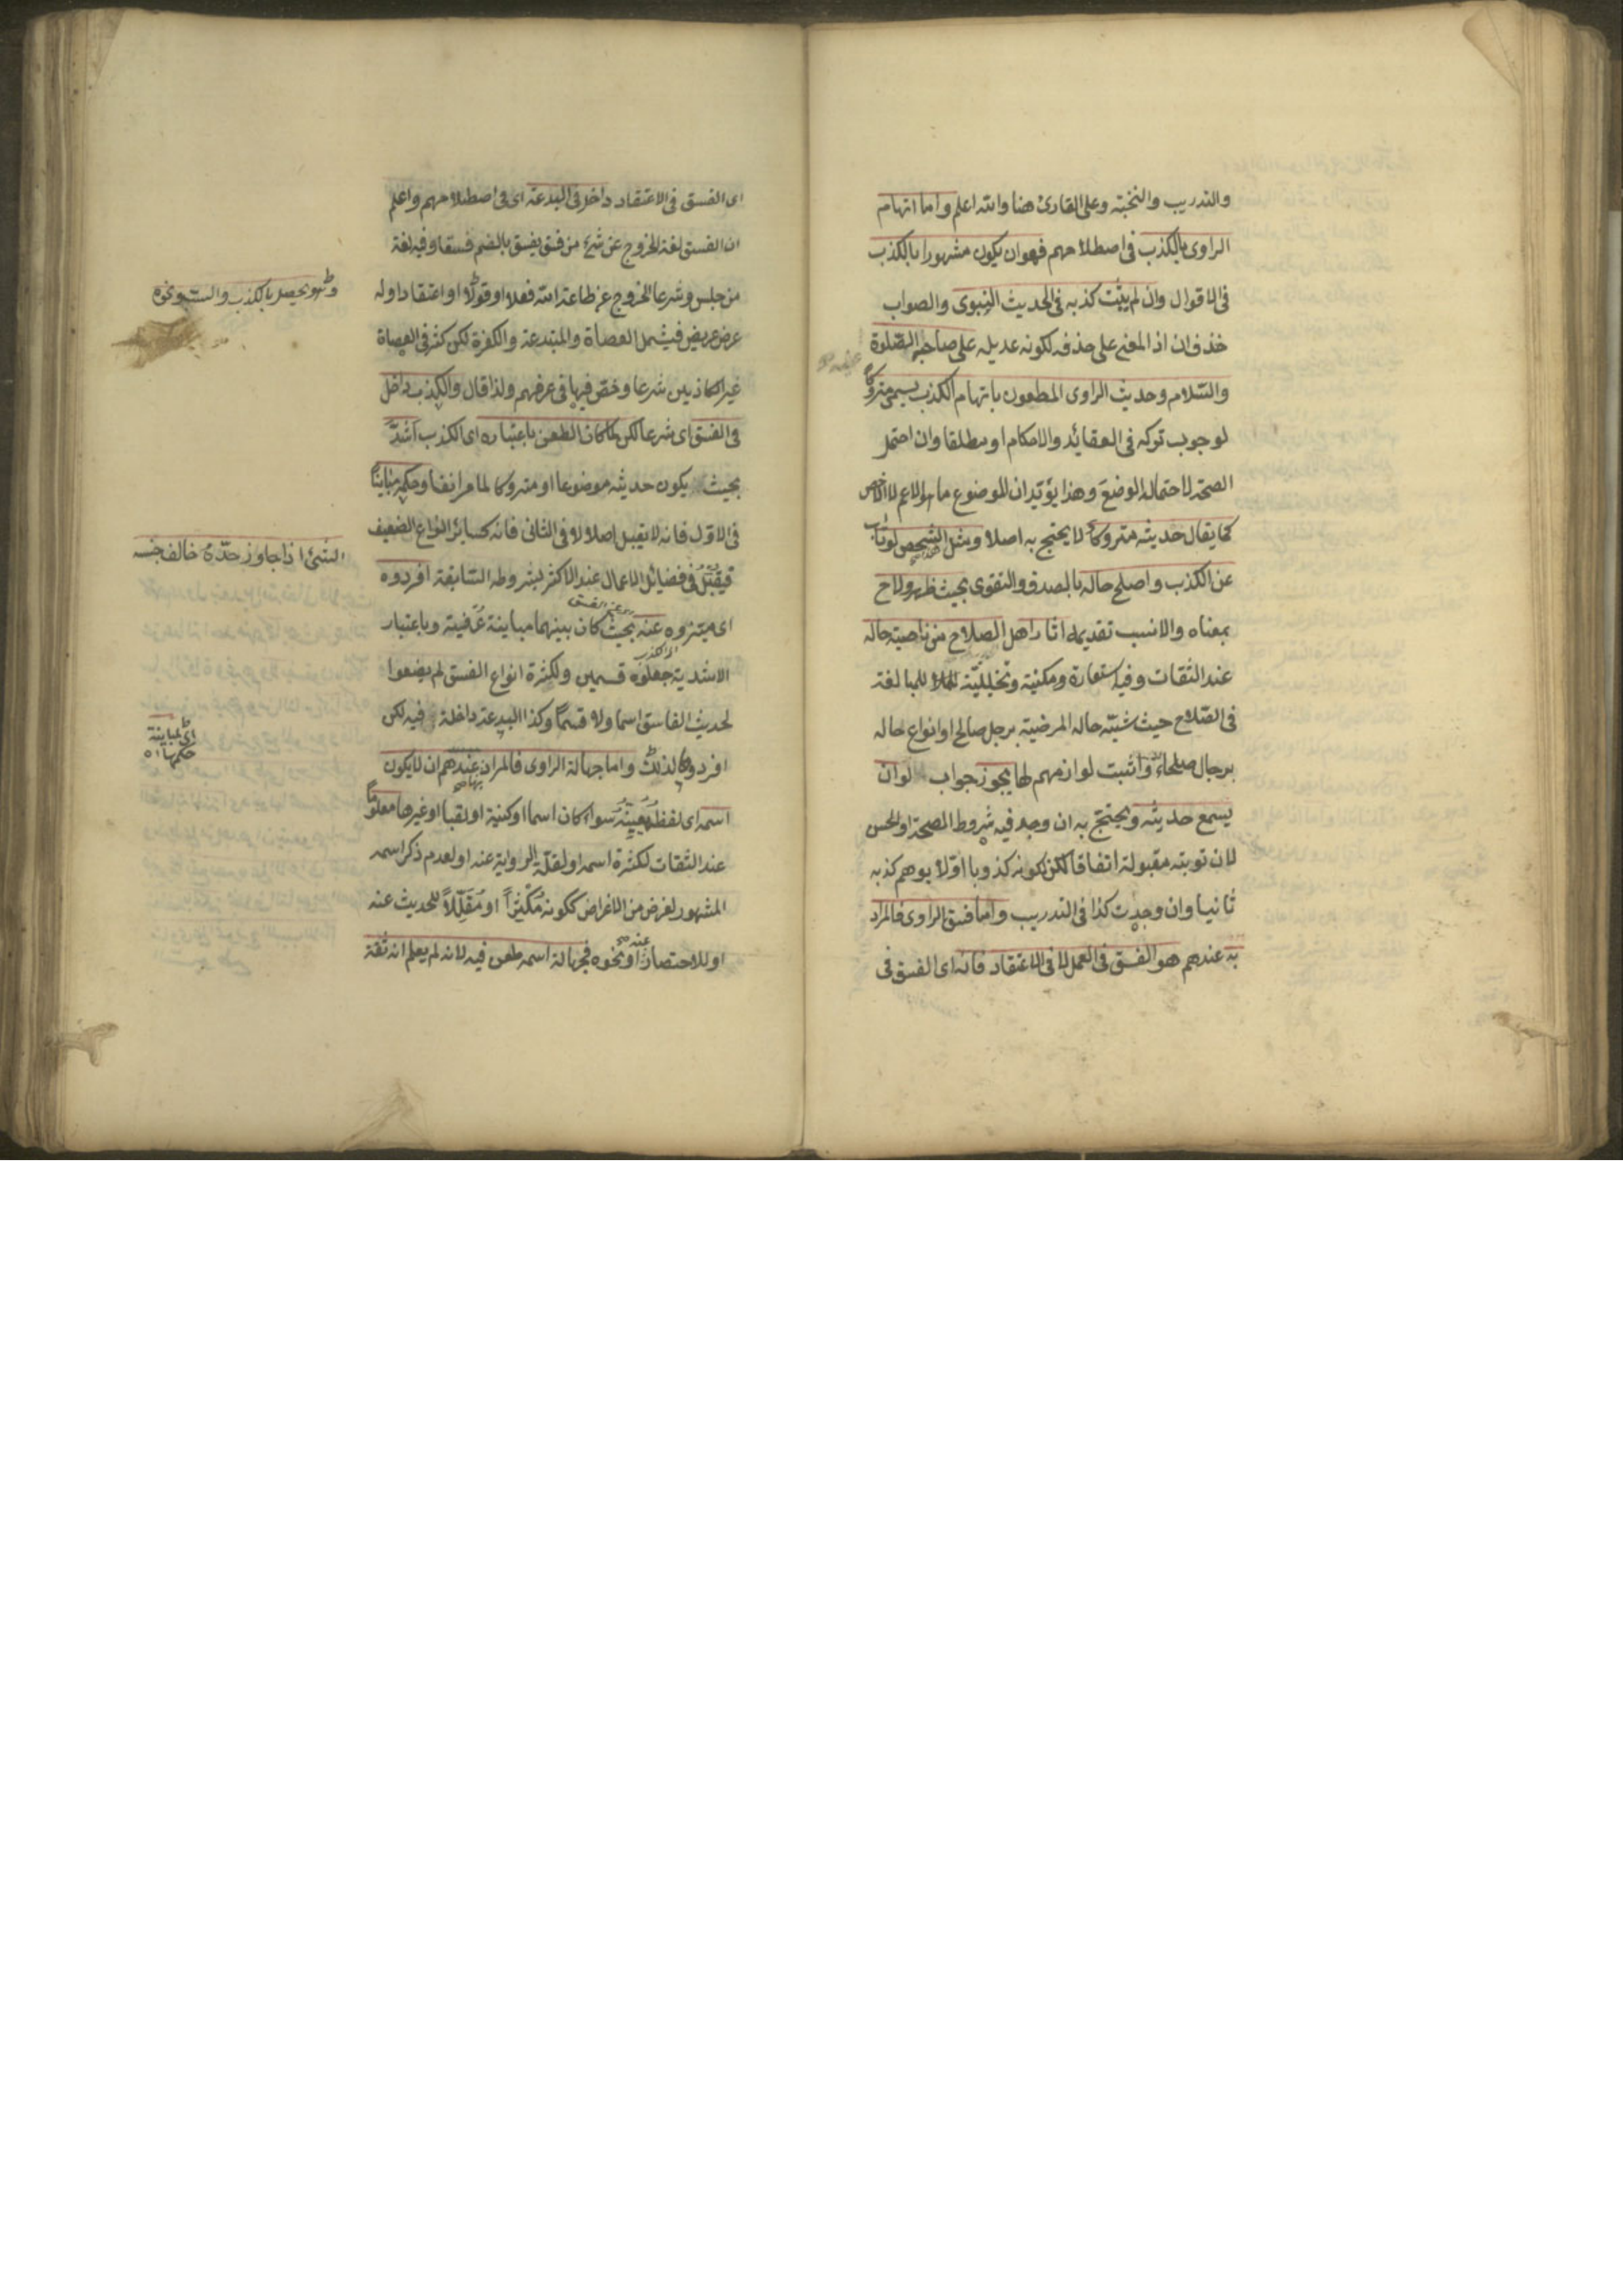 والتدريب والنخبة وعلى القارئ هنا والله اعلم واما اتهام
الراوى بالكذب فى اصطلاحهم فهو ان يكون مشهورا بالكذب
فى الاقوال وان لم يثبت كذبه فى الحديث النبوى والصواب
حذف ان اذ المعنى على حذفه لكونه عديله على صاحبه الصّلوة
والسّلام وحديث الراوى المطعون باتهام الكذب يسمى متروكًا
لوجوب تركه فى العقائد والاحكام او مطلقا وان احتمل
الصحّة لاحتماله الوضع وهذا يؤيّد ان الموضوع ما هو الاعم لا الاخص
كما يقال حديثه متروك لا يحتج به اصلا ومثل الشخص لو تاب
عن الكذب واصلح حاله بالصدق والتقوى بحيث ظهر ولاح
بمعناه والانسب تقديمه اثار اهل الصلاح من ناصية حاله
عند الثقات وفيه استعارة ومكنية وتخييليّة للمبالغة
فى الصّلاح حيث شبّه حاله المرضية برجل صالح او انواع حاله
برجال صلحاء واثبت لوازمهم لها يجوز جواب لو ان
يسمع حديثه ويحتج به ان وجد فيه شروط الصحة او الحسن
لان توبته مقبولة اتفاقا لكن لكونه كذوبا اوّلا يوهم كذبه
ثانيا وان وجدت كذا فى التدريب واما فسق الراوى فالمراد
به عندهم هو الفسق فى العمل لا فى الاعتقاد فانه اى الفسق فى
اى الفسق فى الاعتقاد داخل فى البدعة اى فى اصطلاحهم واعلم
ان الفسق لغة الخروج عن شئ من فسق يفسق بالضم فسقا وفيه لغة
من جلس وشرعا الخروج عن طاعة الله فعلا او قولًا او اعتقادا وله
عرض عريض فيشمل العصاة والمبتدعة والكفرة لكن كثر فى العصاة
غير الكاذبين شرعا وخصّ فيها فى عرفهم ولذا قال والكذب داخل
فى الفسق اى شرعا لكن لما كان الطعن باعتباره اى الكذب اشدّ
بحيث يكون حديثه موضوعا او متروكا لما مر انفا وحكمه مباينًا
فى الاوّل فانه لا يقبل اصلا لا فى الثانى فانه كسائر انواع الضعيف
فيقبل فى فضائل الاعمال عند الاكثر بشروطه السّابقة افردوه
اى ميّزوه عنه بحيث كان بينهما مباينة عرفية وباعتبار
الاشدية جعلوه قسمين ولكثرة انواع الفسق لم يضعوا
لحديث الفاسق اسما ولا قسمًا وكذا البدعة داخلة فيه لكن
افردوها لذلك واما جهالة الراوى فالمراد عندهم ان لا يكون
اسمه اى لفظ يعيّنه سواء كان اسما او كنية او لقبا او غيرها معلومًا
عند الثقات لكثرة اسمه او لقلّة الرواية عنه او لعدم ذكر اسمه
المشهور لغرض من الاغراض ككونه مُكْثِرًا او مُقَلِّلًا للحديث عنه
او للاختصار او نحوه فجهالة اسمه طعن فيه لانه لم يعلم انه ثقة
وهو يحصل بالكذب والستو ونحوه
الشئ اذا جاوز حدّه خالف جنسه
اى لمباينة
حكمها